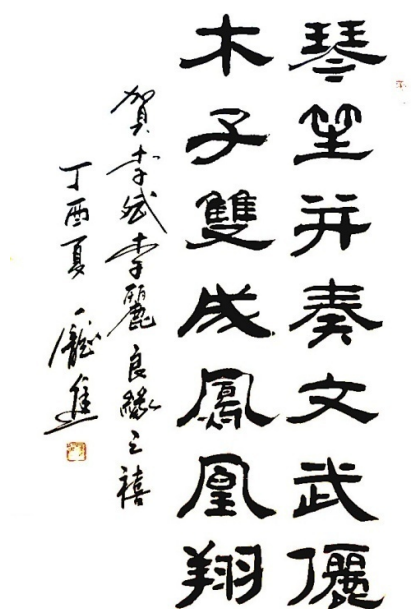 琴笙并奏文武儷
木子雙成鳳凰翔
賀李斌李麗良緣之禧
丁酉夏 龐進